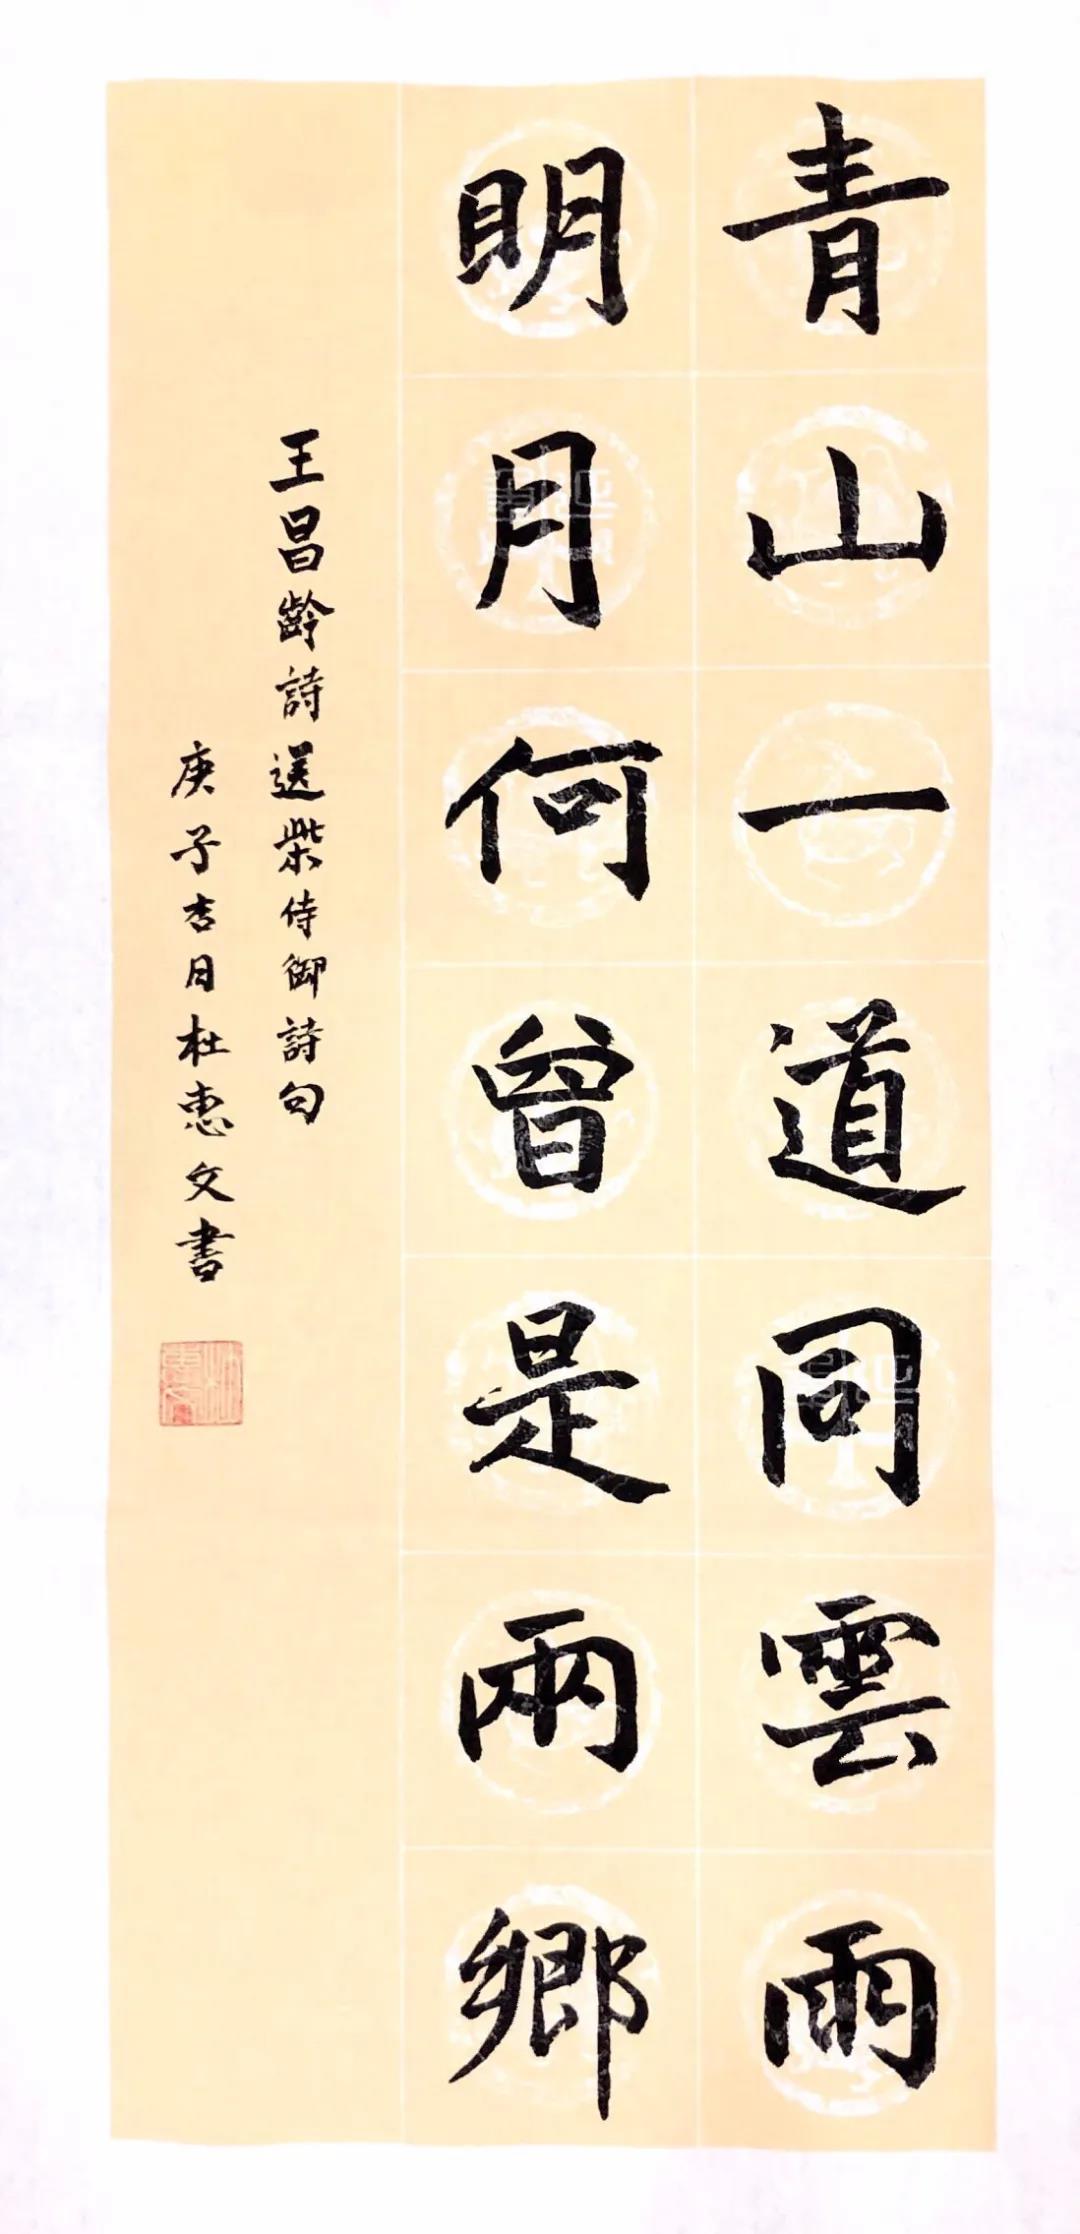 青山一道同雲雨
明月何曾是兩鄉
王昌齡詩送柴侍御詩句
庚子吉月杜惠文書